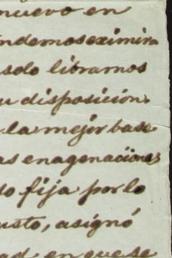 nuevo en
indemos eximir
solo libramos
u disposicion
la mejor base
as enagenaciones
so fija por lo
usto, asignó
ad, en que se